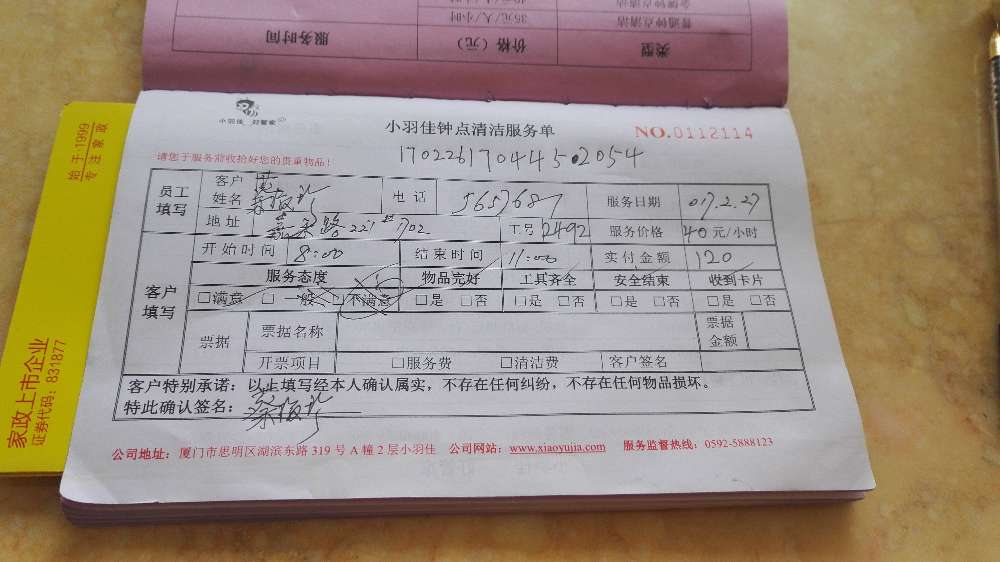 服务时间 价格（元） 类型
35元/人/小时 普通钟点清洁
始于:1999
专注家政
家政上市企业
证券代码: 831877
小羽佳 好管家
小羽佳钟点清洁服务单
NO.0112114
170226170445.2054
请您于服务前收拾好您的贵重物品！
员工填写 客户姓名 电话 5653687 服务日期 017.2.27
地址 嘉禾路221#1702 工号 2492 服务价格 40元/小时
客户填写 开始时间 8:00 结束时间 11:00 实付金额 120
服务态度 物品完好 工具齐全 安全结束 收到卡片
□满意 □一般 □不满意 □是 □否 □是 □否 □是 □否 □是 □否
票据 票据名称 票据金额
开票项目 □服务费 □清洁费 客户签名
客户特别承诺：以上填写经本人确认属实，不存在任何纠纷，不存在任何物品损坏。
特此确认签名：
公司地址：厦门市思明区湖滨东路 319 号 A 幢 2 层小羽佳 公司网站：www.xiaoyujia.com 服务监督热线：0592-5888123